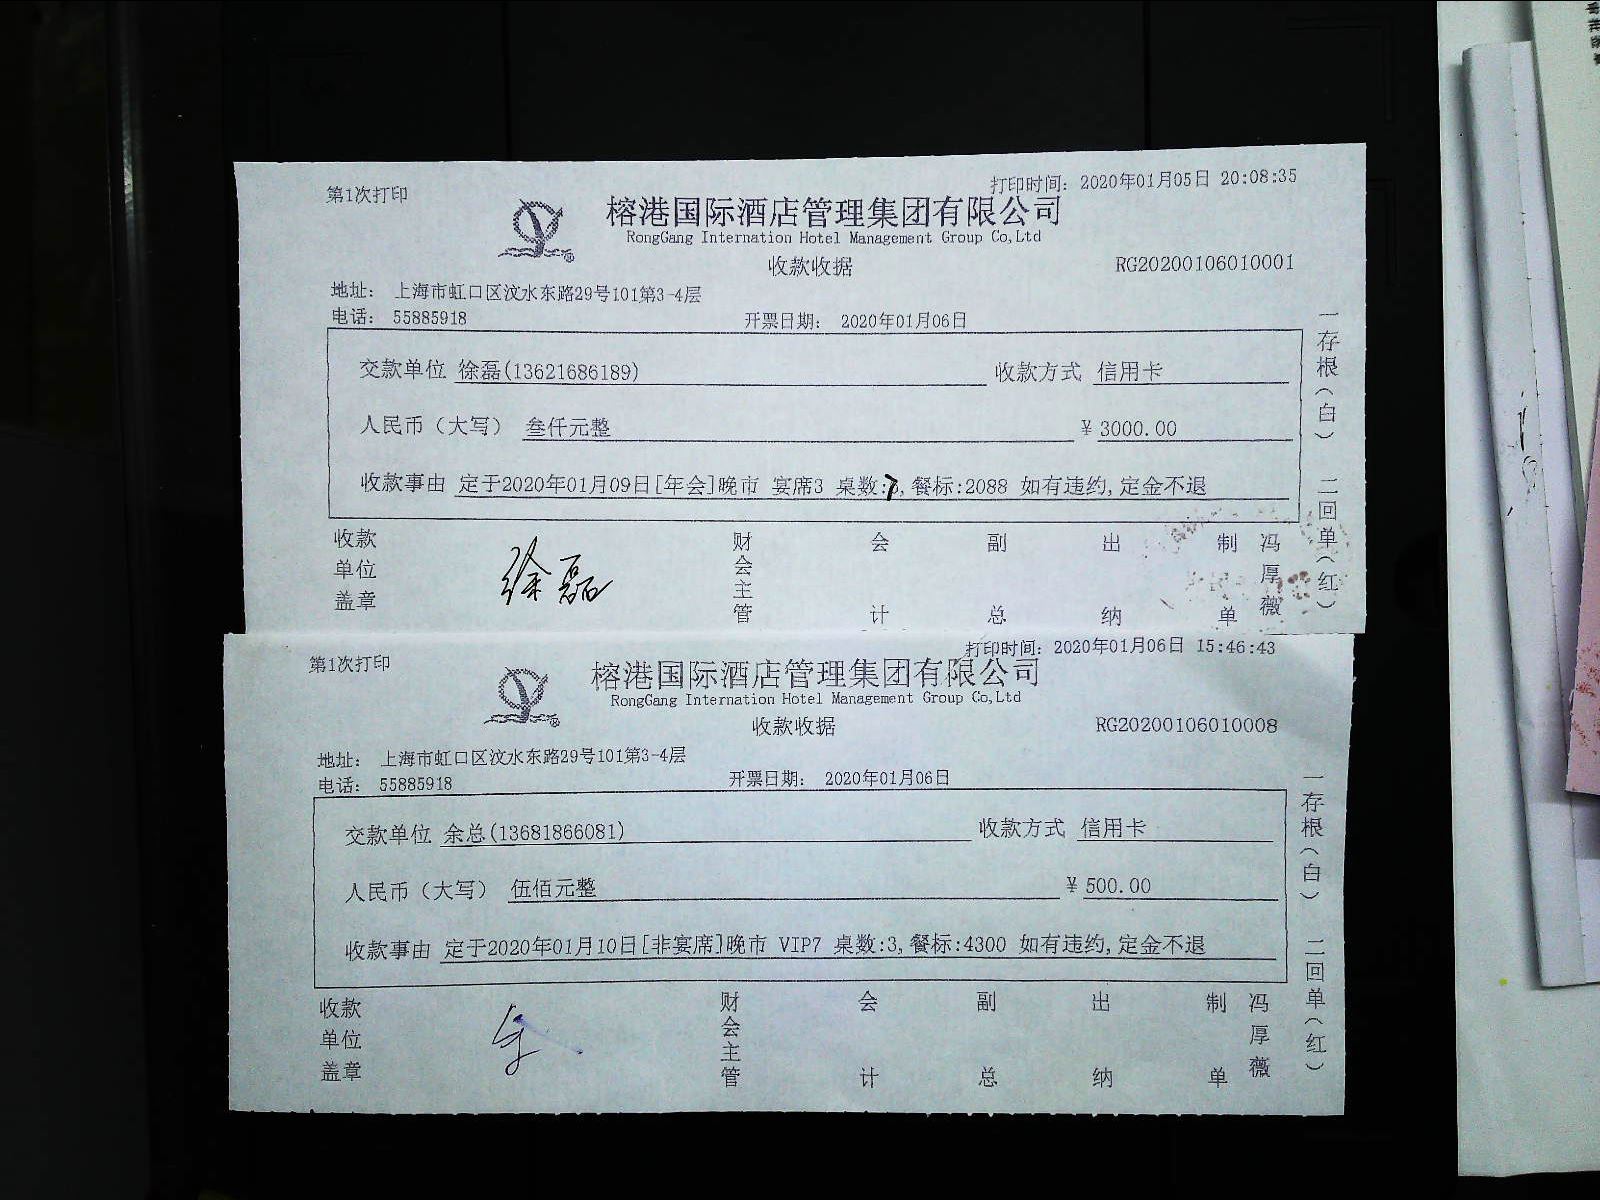 第1次打印
打印时间: 2020年01月05日 20:08:35
榕港国际酒店管理集团有限公司
RongGang Internation Hotel Management Group Co,Ltd
收款收据
RG20200106010001
地址: 上海市虹口区汶水东路29号101第3-4层
电话: 55885918
开票日期: 2020年01月06日
交款单位 徐磊(13621686189) 收款方式 信用卡
人民币(大写) 叁仟元整 ¥3000.00
收款事由 定于2020年01月09日[年会]晚市 宴席3 桌数:7,餐标:2088 如有违约,定金不退
收款单位盖章 徐磊 财会主管 会计 副总 出纳 制单 冯厚薇
一存根(白) 二回单(红)
第1次打印
打印时间: 2020年01月06日 15:46:43
榕港国际酒店管理集团有限公司
RongGang Internation Hotel Management Group Co,Ltd
收款收据
RG20200106010008
地址: 上海市虹口区汶水东路29号101第3-4层
电话: 55885918
开票日期: 2020年01月06日
交款单位 余总(13681866081) 收款方式 信用卡
人民币(大写) 伍佰元整 ¥500.00
收款事由 定于2020年01月10日[非宴席]晚市 VIP7 桌数:3,餐标:4300 如有违约,定金不退
收款单位盖章 财会主管 会计 副总 出纳 制单 冯厚薇
一存根(白) 二回单(红)